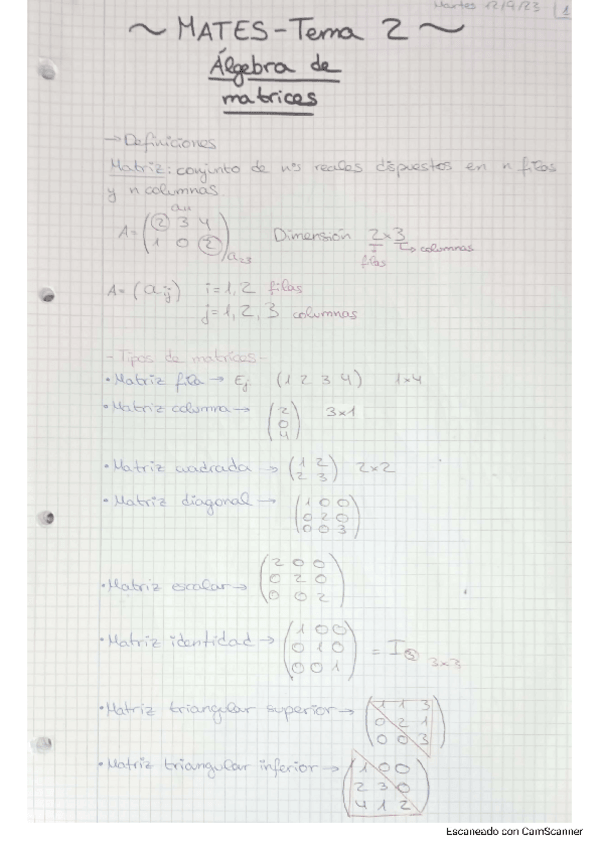 Martes 12/9/23 1
~ MATES - Tema 2 ~
Álgebra de
matrices
→ Definiciones
Matriz: conjunto de nºs reales dispuestos en n filas
y n columnas
a₁₁
A = (2 3 4
1 0 2) a₂₃
Dimensión 2x3 → columnas
filas
A = (aij) i = 1, 2 filas
j = 1, 2, 3 columnas
- Tipos de matrices -
• Matriz fila → Ej (1 2 3 4) 1x4
• Matriz columna → (2
0
4) 3x1
• Matriz cuadrada → (1 2
2 3) 2x2
• Matriz diagonal → (1 0 0
0 2 0
0 0 3)
• Matriz escalar → (2 0 0
0 2 0
0 0 2)
• Matriz identidad → (1 0 0
0 1 0
0 0 1) = I③ 3x3
• Matriz triangular superior → (1 1 3
0 2 1
0 0 3)
• Matriz triangular inferior → (1 0 0
2 3 0
4 1 2)
Escaneado con CamScanner